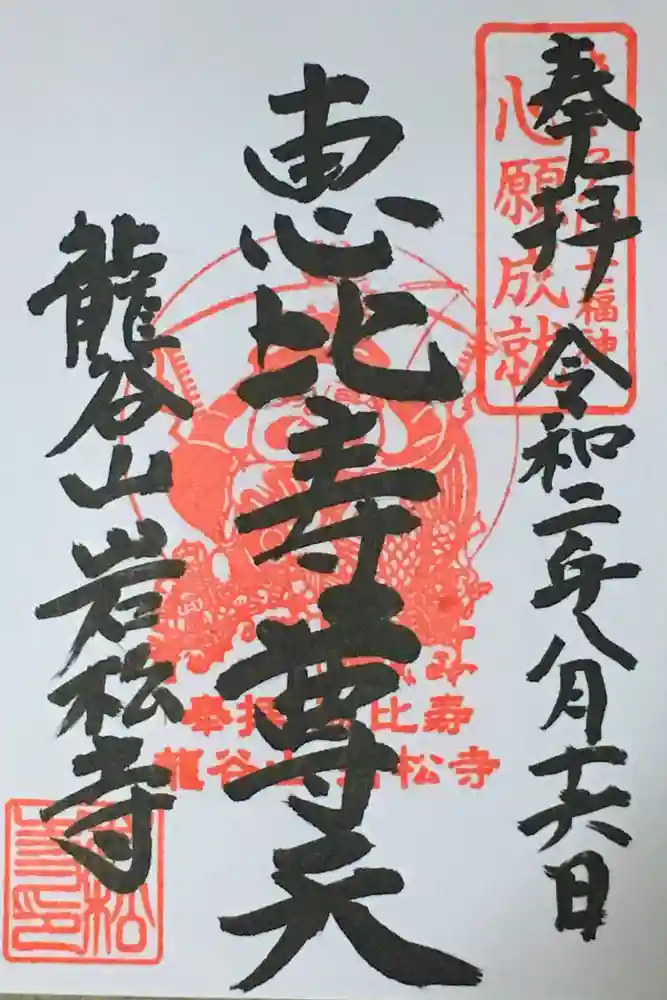 奉拝
令和二年八月十六日
心願成就
七福神
恵比寿尊天
恵比寿
龍谷山岩松寺
龍谷山岩松寺